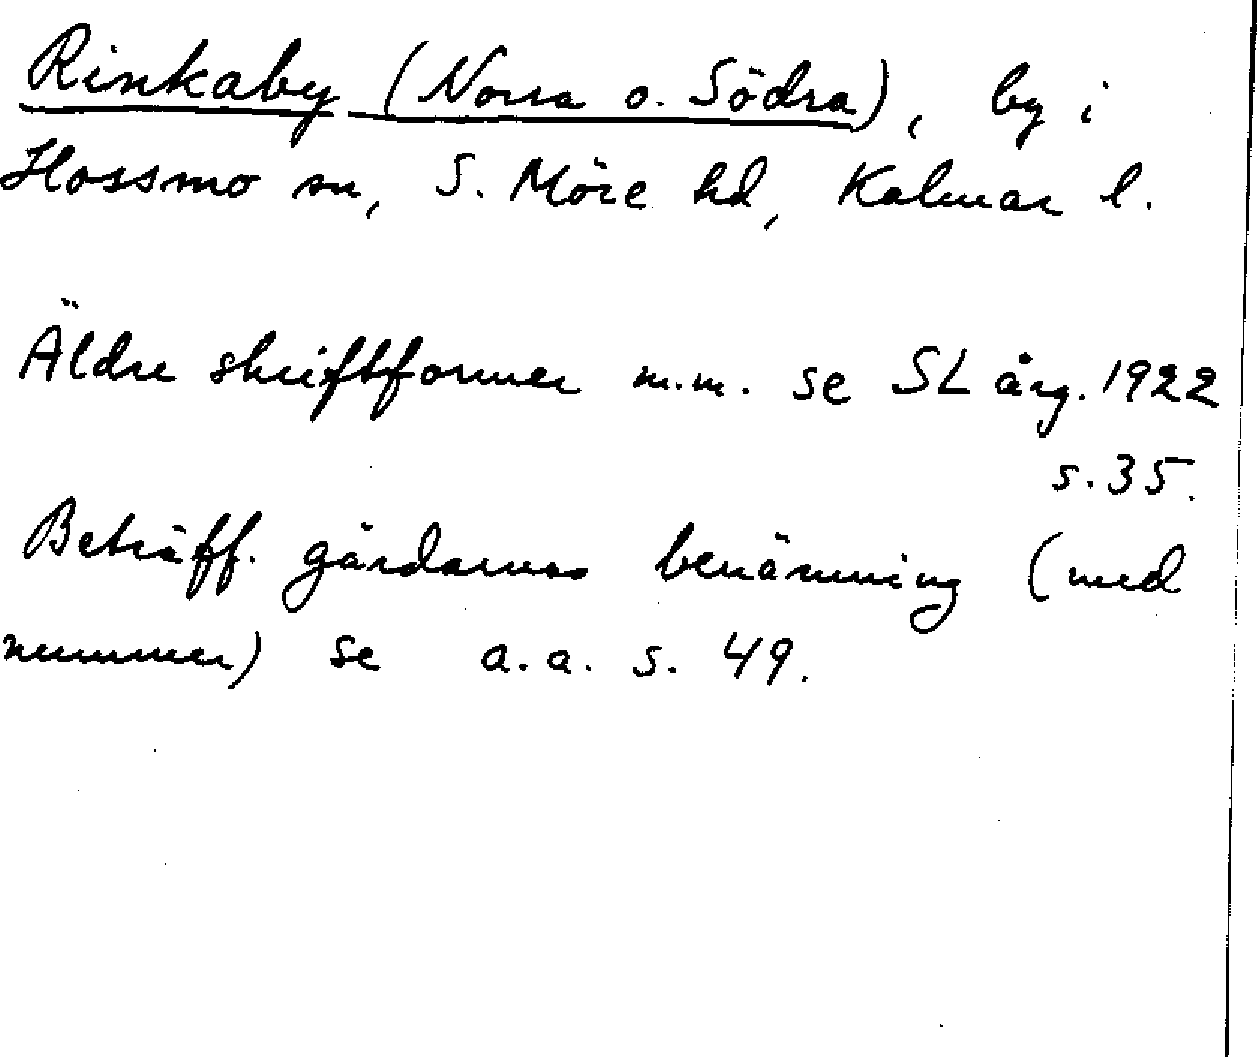 Rinkaby (Norra o. Södra), by i
Hossmo sn, S. Möre hd, Kalmar l.
Äldre skriftformer m.m. se SL årg. 1922
s. 35.
Beträff. gårdarnas benämning (med
nummer) se a.a. s. 49.